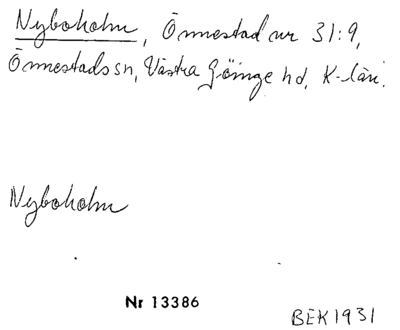 Nyboholm, Önnestad nr 31:9,
Önnestads sn, Västra Göinge hd, K-län.
Nyboholm
Nr 13386
BEK 1931